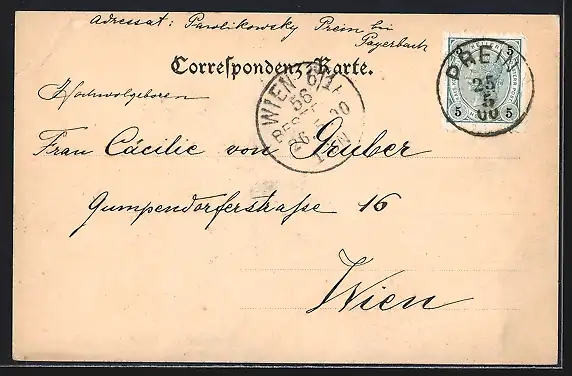 Adressat: Pawlikowsky Prein bei
Payerbach
Correspondenz-Karte.
Hochwolgeboren
Frau Cäcilie von Gruber
Gumpendorferstraße 16
Wien
PREIN
25
5
00
5 5
WIEN 6/1
56